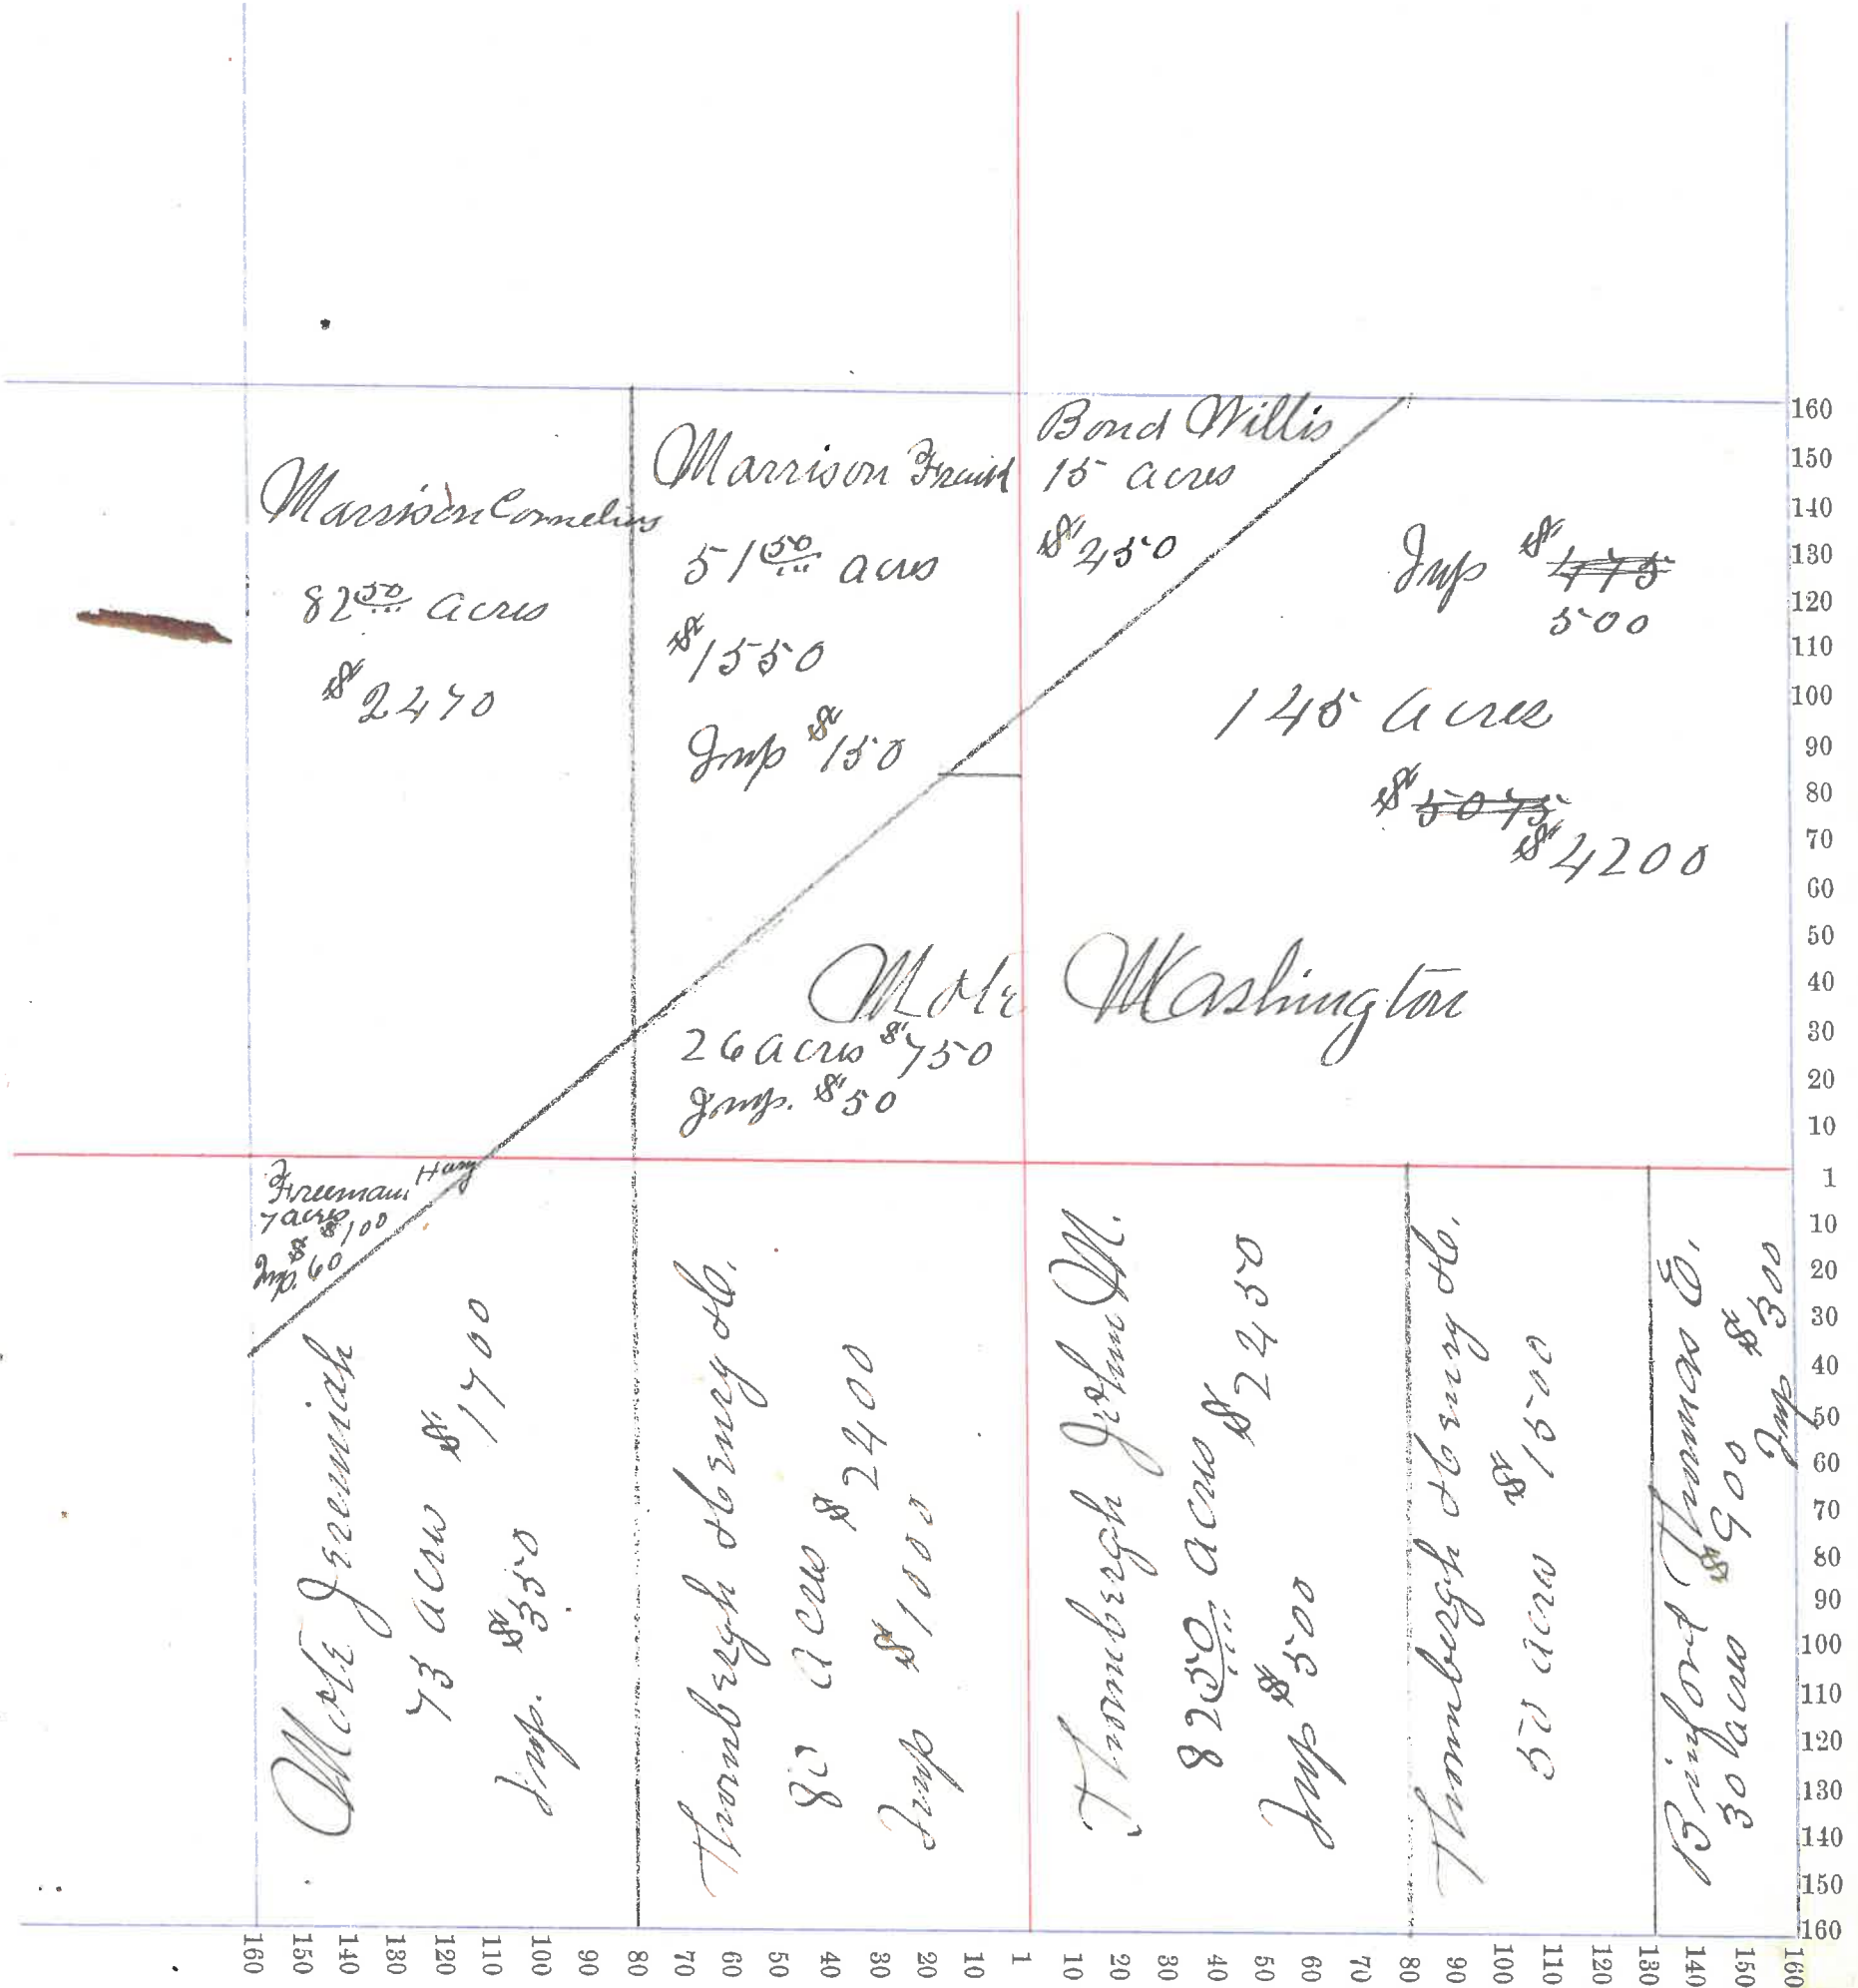 Marrison Cornelius
82 50/... acres
$2470
Marrison Frank
51 50/... acres
$1550
Imp $150
Bond Willis
15 acres
$450
Imp $475
500
145 acres
$5075
$4200
Mote Washington
26 acres $750
Imp. $50
Freeman Harry
7 acres
$100
Imp. $60
Mote Jeremiah
73 acres $1700
Imp. $350
Thornbergh Henry H.
80 acres $2400
Imp $1000
Thornbergh John M.
82 50/... acres $2450
Imp $500
Thornbergh Henry H.
50 acres $1500
Binford Thomas E.
30 acres $900
Imp $300
160
150
140
130
120
110
100
90
80
70
60
50
40
30
20
10
1
10
20
30
40
50
60
70
80
90
100
110
120
130
140
150
160
160 150 140 130 120 110 100 90 80 70 60 50 40 30 20 10 1 10 20 30 40 50 60 70 80 90 100 110 120 130 140 150 160